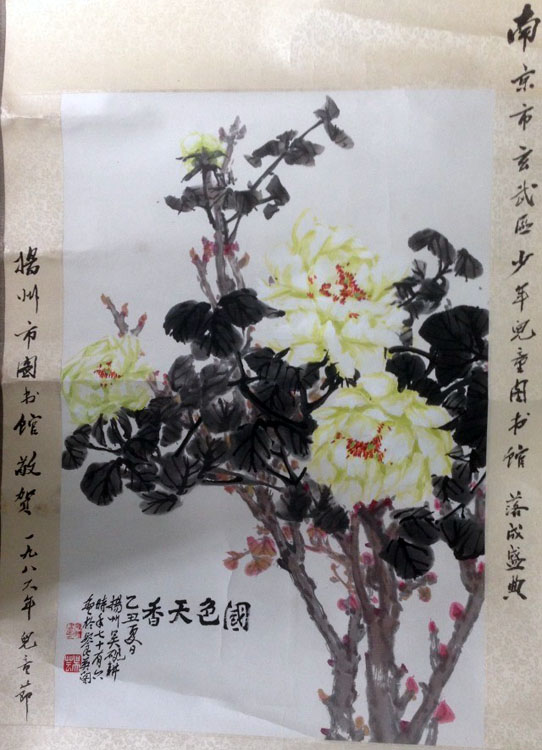 南京市玄武區少年兒童图书馆 落成盛典
國色天香
乙丑夏日
揚州吴砚耕
時年七十有六
揚州市图书馆敬贺 一九八六年兒童節